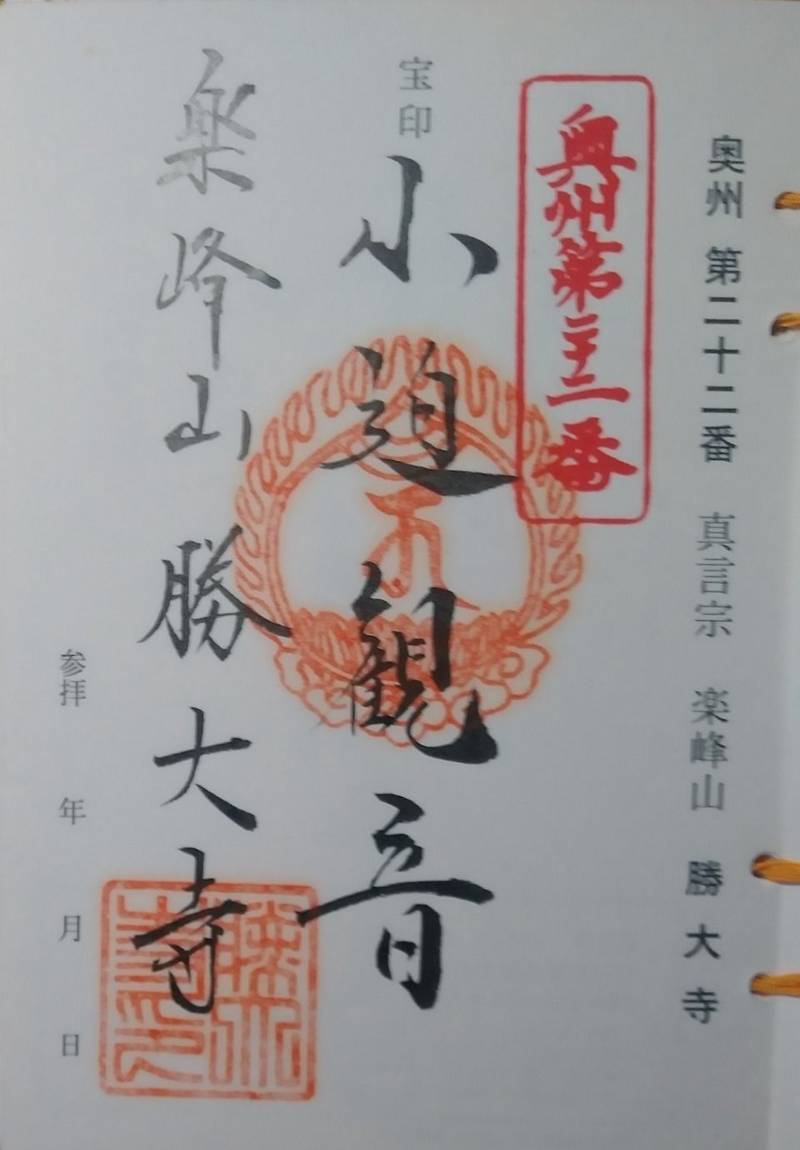 奥州 第二十二番 真言宗 楽峰山 勝大寺
奥州第二十二番
宝印
小迫観音
楽峰山勝大寺
参拝 年 月 日